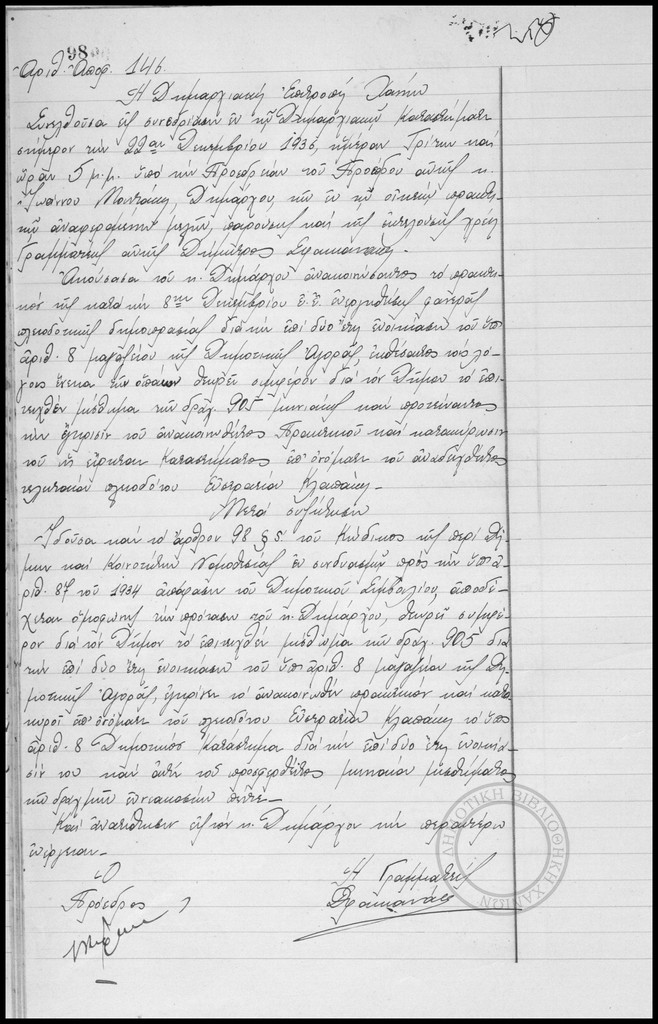 98
Ἀριθ. Ἀποφ. 146.
Ἡ Δημαρχιακὴ Ἐπιτροπὴ Χανίων
Συνελθοῦσα εἰς συνεδρίασιν ἐν τῷ Δημαρχιακῷ Καταστήματι
σήμερον τὴν 22αν Δεκεμβρίου 1936, ἡμέραν Τρίτην καὶ
ὥραν 5 μ.μ. ὑπὸ τὴν Προεδρείαν τοῦ Προέδρου αὐτῆς κ.
Ἰωάννου Μουντάκη, Δημάρχου, τῶν ἐν τῷ οἰκείῳ πρακτι-
κῷ ἀναφερομένων μελῶν, παρόντος καὶ τῆς ἐκτελούσης χρέη
Γραμματέως αὐτῆς Σφακιανάκη.
Ἀκούσασα τοῦ κ. Δημάρχου ἀνακοινώσαντος τὸ πρακτι-
κὸν τῆς κατὰ τὴν 8ην Δεκεμβρίου ἐ.ἔ. ἐνεργηθείσης φανερᾶς
πλειοδοτικῆς δημοπρασίας διὰ τὴν ἐπὶ δύο ἔτη ἐνοικίασιν τοῦ ὑπ'
ἀριθ. 8 μαγαζείου τῆς Δημοτικῆς Ἀγορᾶς, ἐκθέσαντος τοὺς λό-
γους ἕνεκα τῶν ὁποίων θεωρεῖ συμφέρον διὰ τὸν Δῆμον τὸ ἐπι-
τευχθὲν μίσθωμα τῶν δραχ. 905 μηνιαίως καὶ προτείναντος
τὴν ἔγκρισιν τοῦ ἀνακοινωθέντος Πρακτικοῦ καὶ κατακύρωσιν
τοῦ ὡς εἴρηται Καταστήματος ἐπ' ὀνόματι τοῦ ἀναδειχθέντος
τελευταίου πλειοδότου Εὐστρατίου Κλαπάκη.
Μετὰ συζήτησιν
Ἰδοῦσα καὶ τὸ ἄρθρον 98 § 5 τοῦ Κώδικος τῆς περὶ Δή-
μων καὶ Κοινοτήτων Νομοθεσίας ἐν συνδυασμῷ πρὸς τὴν ὑπ' ἀ-
ριθ. 87 τοῦ 1934 ἀπόφασιν τοῦ Δημοτικοῦ Συμβουλίου, ἀποδέ-
χεται ὁμοφώνως τὴν πρότασιν τοῦ κ. Δημάρχου, θεωρεῖ συμφέ-
ρον διὰ τὸν Δῆμον τὸ ἐπιτευχθὲν μίσθωμα τῶν δραχ. 905 διὰ
τὴν ἐπὶ δύο ἔτη ἐνοικίασιν τοῦ ὑπ' ἀριθ. 8 μαγαζείου τῆς Δη-
μοτικῆς Ἀγορᾶς, ἐγκρίνει τὸ ἀνακοινωθὲν πρακτικὸν καὶ κατα-
κυροῖ ἐπ' ὀνόματι τοῦ πλειοδότου Εὐστρατίου Κλαπάκη τὸ ὑπ'
ἀριθ. 8 Δημοτικὸν Κατάστημα διὰ τὴν ἐπὶ δύο ἔτη ἐνοικία-
σίν του καὶ ἀντὶ τοῦ προσφερθέντος μηνιαίου μισθώματος
τῶν δραχμῶν ἐννεακοσίων πέντε.
Καὶ ἀνατίθησιν εἰς τὸν κ. Δήμαρχον τὴν περαιτέρω
ἐνέργειαν.
Ὁ
Πρόεδρος
Ἡ Γραμματεὺς
Σφακιανάκη
ΔΗΜΟΤΙΚΗ ΒΙΒΛΙΟΘΗΚΗ ΧΑΝΙΩΝ